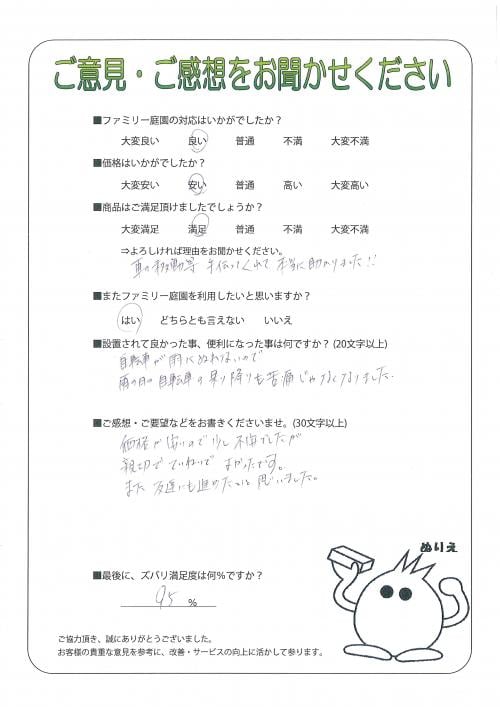 ご意見・ご感想をお聞かせください
■ファミリー庭園の対応はいかがでしたか？
大変良い 良い 普通 不満 大変不満
■価格はいかがでしたか？
大変安い 安い 普通 高い 大変高い
■商品はご満足頂けましたでしょうか？
大変満足 満足 普通 不満 大変不満
⇒よろしければ理由をお聞かせください。
車の移動等 手伝ってくれて 本当に助かりました!!
■またファミリー庭園を利用したいと思いますか？
はい どちらとも言えない いいえ
■設置されて良かった事、便利になった事は何ですか？(20文字以上)
自転車が雨にぬれないので
雨の日の自転車の乗り降りも苦痛じゃなくなりました。
■ご感想・ご要望などをお書きくださいませ。(30文字以上)
価格が安いので少し不安でしたが
親切でていねいで よかったです。
また 友達にも進めたいと思いました。
ぬりえ
■最後に、ズバリ満足度は何％ですか？
95 ％
ご協力頂き、誠にありがとうございました。
お客様の貴重な意見を参考に、改善・サービスの向上に活かして参ります。